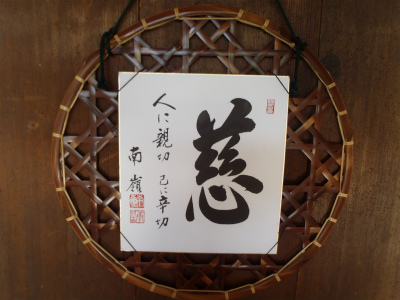 慈
人に親切 己に辛切
南嶺